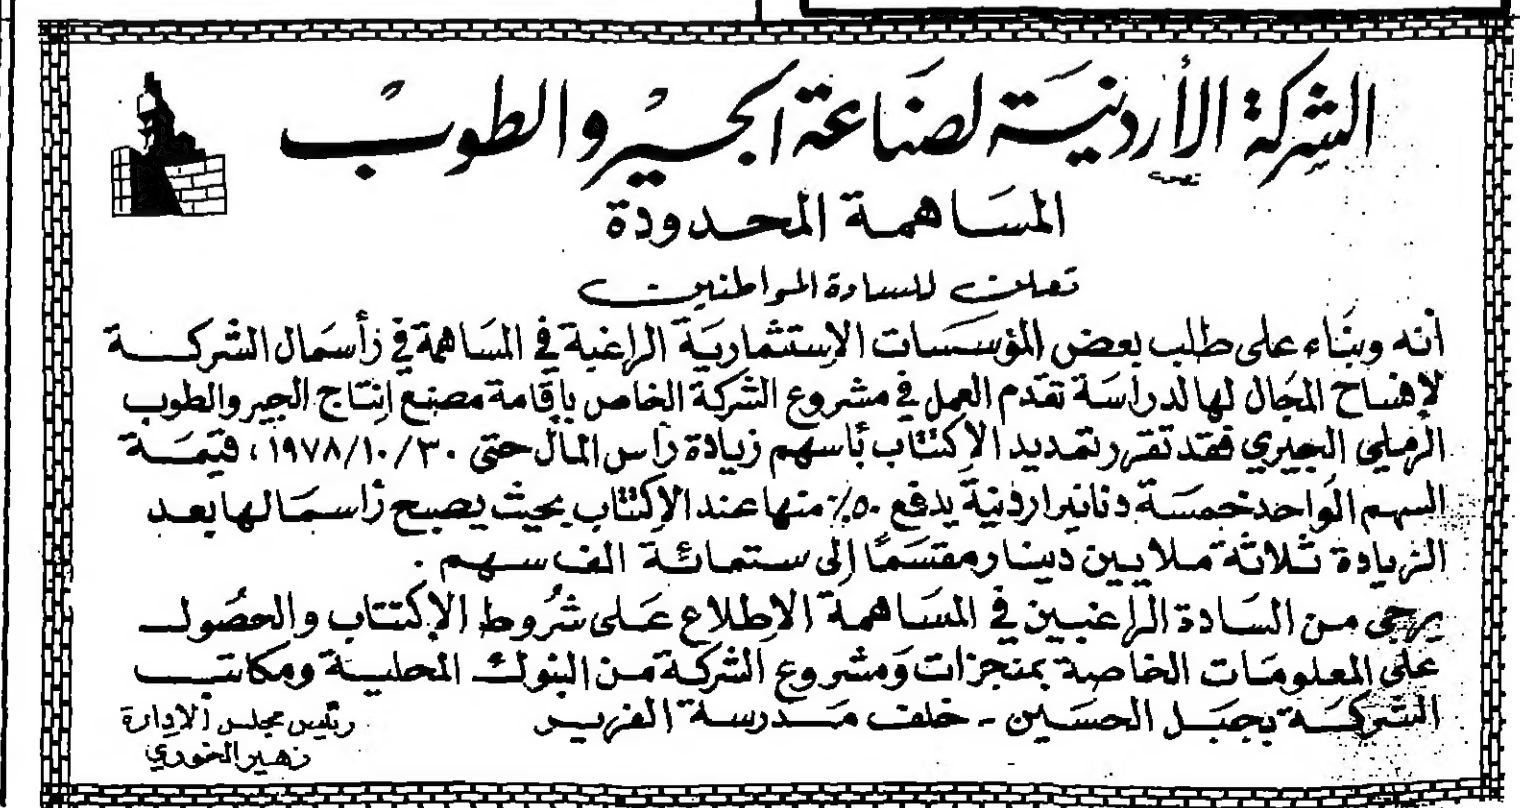 الشركة الأردنية لصناعة الجير والطوب
المساهمة المحدودة
تعلن للسادة المواطنين
أنه وبناء على طلب بعض المؤسسات الإستثمارية الراغبة في المساهمة في رأسمال الشركة
لإفساح المجال لها لدراسة تقدم العمل في مشروع الشركة الخاص بإقامة مصنع إنتاج الجير والطوب
الرملي الجيري فقد تقرر تمديد الإكتتاب بأسهم زيادة رأس المال حتى ١٩٧٨/١٠/٣٠ ، قيمة
السهم الواحد خمسة دنانير اردنية يدفع ٥٠٪ منها عند الإكتتاب بحيث يصبح رأسمالها بعد
الزيادة ثلاثة ملايين دينار مقسمًا إلى ستمائة الف سهم .
يرجى من السادة الراغبين في المساهمة الاطلاع على شروط الإكتتاب والحصول
على المعلومات الخاصة بمنجزات ومشروع الشركة من البنوك المحلية ومكاتب
الشركة بجبل الحسين - خلف مدرسة الفرير
رئيس مجلس الادارة
زهير الخوري